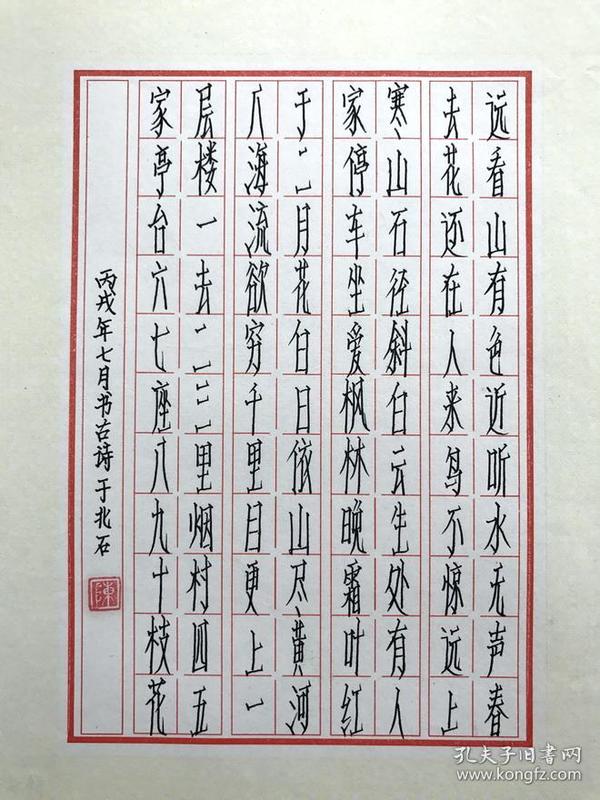 远看山有色近听水无声春
去花还在人来鸟不惊远上
寒山石径斜白云生处有人
家停车坐爱枫林晚霜叶红
于二月花白日依山尽黄河
入海流欲穷千里目更上一
层楼一去二三里烟村四五
家亭台六七座八九十枝花
丙戌年七月书古诗于北石
陳
孔夫子旧书网
www.kongfz.com